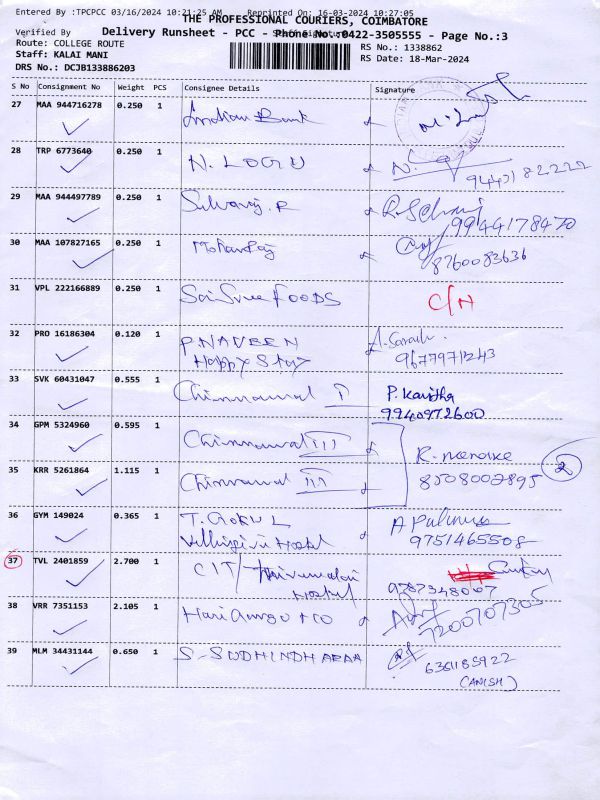 Entered By :TPCPCC 03/16/2024 10:21:25 AM Reprinted On: 16-03-2024 10:27:05
THE PROFESSIONAL COURIERS, COIMBATORE
Verified By Staff Signature
Delivery Runsheet - PCC - Phone No.:0422-3505555 - Page No.:3
Route: COLLEGE ROUTE RS No.: 1338862
Staff: KALAI MANI RS Date: 18-Mar-2024
DRS No.: DCJB133886203
S No Consignment No Weight PCS Consignee Details Signature
27 MAA 944716278 0.250 1 Indian Bank
28 TRP 6773640 0.250 1 N. LOGU N.
29 MAA 944497789 0.250 1 Selvaraj. R R. Selvaraj
9944178470
30 MAA 107827165 0.250 1 Mohanraj
8760083636
31 VPL 222166889 0.250 1 Sai Sree FOODS C/N
32 PRO 16186304 0.120 1 P. NAVEEN
Happy Stay 9677971243
33 SVK 60431047 0.555 1 Chinnammal I P. Kavitha
9940972600
34 GPM 5324960 0.595 1 Chinnammal III
35 KRR 5261864 1.115 1 Chinnammal III 8508002895 2
36 GYM 149024 0.365 1 T. GOKUL
Vellingiri Hostel 9751465508
37 TVL 2401859 2.700 1 CIT/ Thirumalai
Hostel 9787348007
38 VRR 7351153 2.105 1 7200707305
39 MLM 34431144 0.650 1 S-SUDHINDHARAA 6361185922
(ANISH)